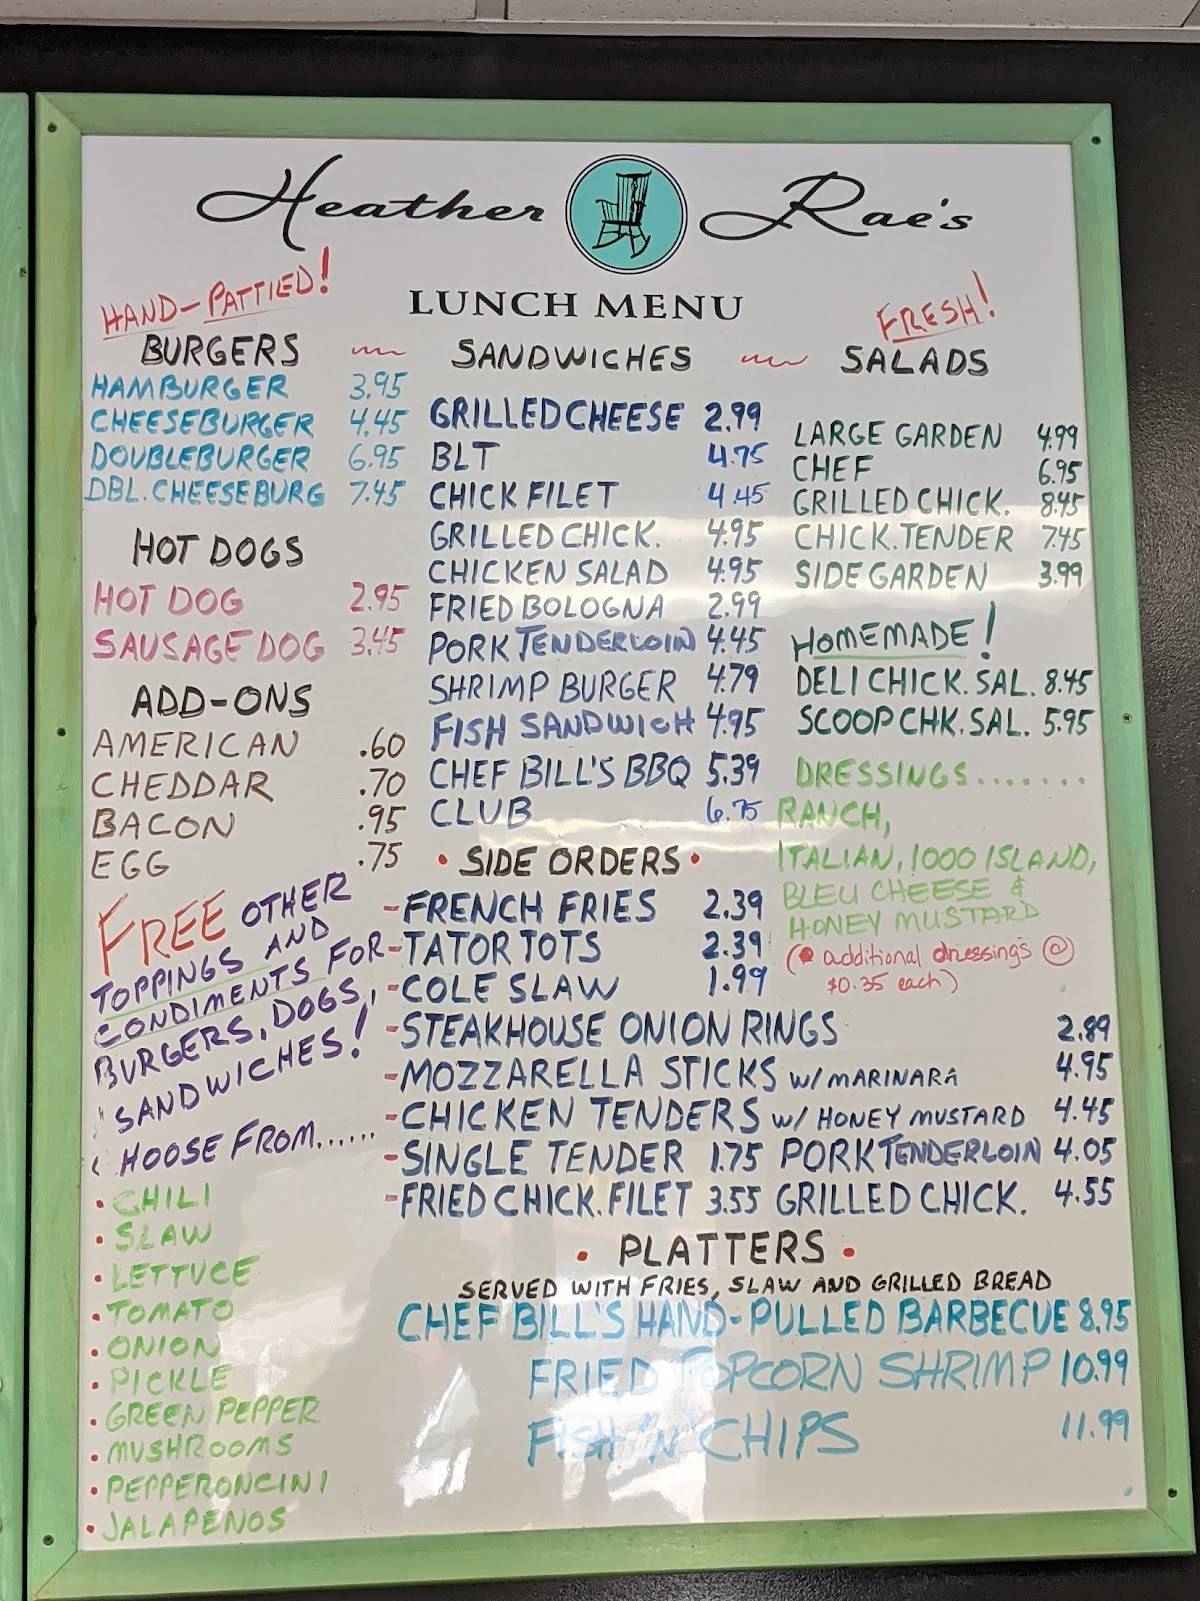 Heather Rae's
LUNCH MENU
HAND-PATTIED!
BURGERS
HAMBURGER 3.95
CHEESEBURGER 4.45
DOUBLEBURGER 6.95
DBL. CHEESEBURG 7.45
HOT DOGS
HOT DOG 2.95
SAUSAGE DOG 3.45
ADD-ONS
AMERICAN .60
CHEDDAR .70
BACON .95
EGG .75
FREE OTHER
TOPPINGS AND
CONDIMENTS FOR
BURGERS, DOGS,
SANDWICHES!
CHOOSE FROM......
• CHILI
• SLAW
• LETTUCE
• TOMATO
• ONION
• PICKLE
• GREEN PEPPER
• MUSHROOMS
• PEPPERONCINI
• JALAPENOS
SANDWICHES
GRILLED CHEESE 2.99
BLT 4.75
CHICK FILET 4.45
GRILLED CHICK. 4.95
CHICKEN SALAD 4.95
FRIED BOLOGNA 2.99
PORK TENDERLOIN 4.45
SHRIMP BURGER 4.79
FISH SANDWICH 4.95
CHEF BILL'S BBQ 5.39
CLUB 6.75
FRESH!
SALADS
LARGE GARDEN 4.99
CHEF 6.95
GRILLED CHICK. 8.45
CHICK. TENDER 7.45
SIDE GARDEN 3.99
HOMEMADE!
DELI CHICK. SAL. 8.45
SCOOP CHK. SAL. 5.95
DRESSINGS.......
RANCH,
ITALIAN, 1000 ISLAND,
BLEU CHEESE &
HONEY MUSTARD
(• additional dressings @
$0.35 each)
• SIDE ORDERS •
-FRENCH FRIES 2.39
-TATOR TOTS 2.39
-COLE SLAW 1.99
-STEAKHOUSE ONION RINGS 2.89
-MOZZARELLA STICKS W/ MARINARA 4.95
-CHICKEN TENDERS W/ HONEY MUSTARD 4.45
-SINGLE TENDER 1.75 PORK TENDERLOIN 4.05
-FRIED CHICK. FILET 3.55 GRILLED CHICK. 4.55
• PLATTERS •
SERVED WITH FRIES, SLAW AND GRILLED BREAD
CHEF BILL'S HAND-PULLED BARBECUE 8.95
FRIED POPCORN SHRIMP 10.99
FISH 'N' CHIPS 11.99